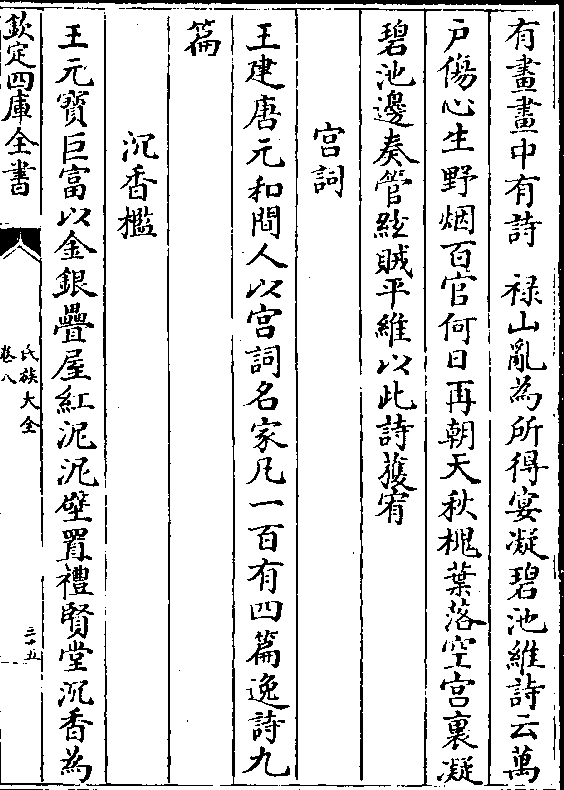 有畫畫中有詩　禄山亂為所得宴凝碧池維詩云萬
戸傷心生野烟百官何日再朝天秋槐葉落空宫裏凝
碧池邊奏管絃賊平維以此詩獲宥
宫詞
王建唐元和間人以宫詞名家凡一百有四篇逸詩九
篇
沉香檻
王元寳巨富以金銀疊屋紅泥泥壁置禮賢堂沉香為
欽定四庫全書
氏族大全
卷八
三十五